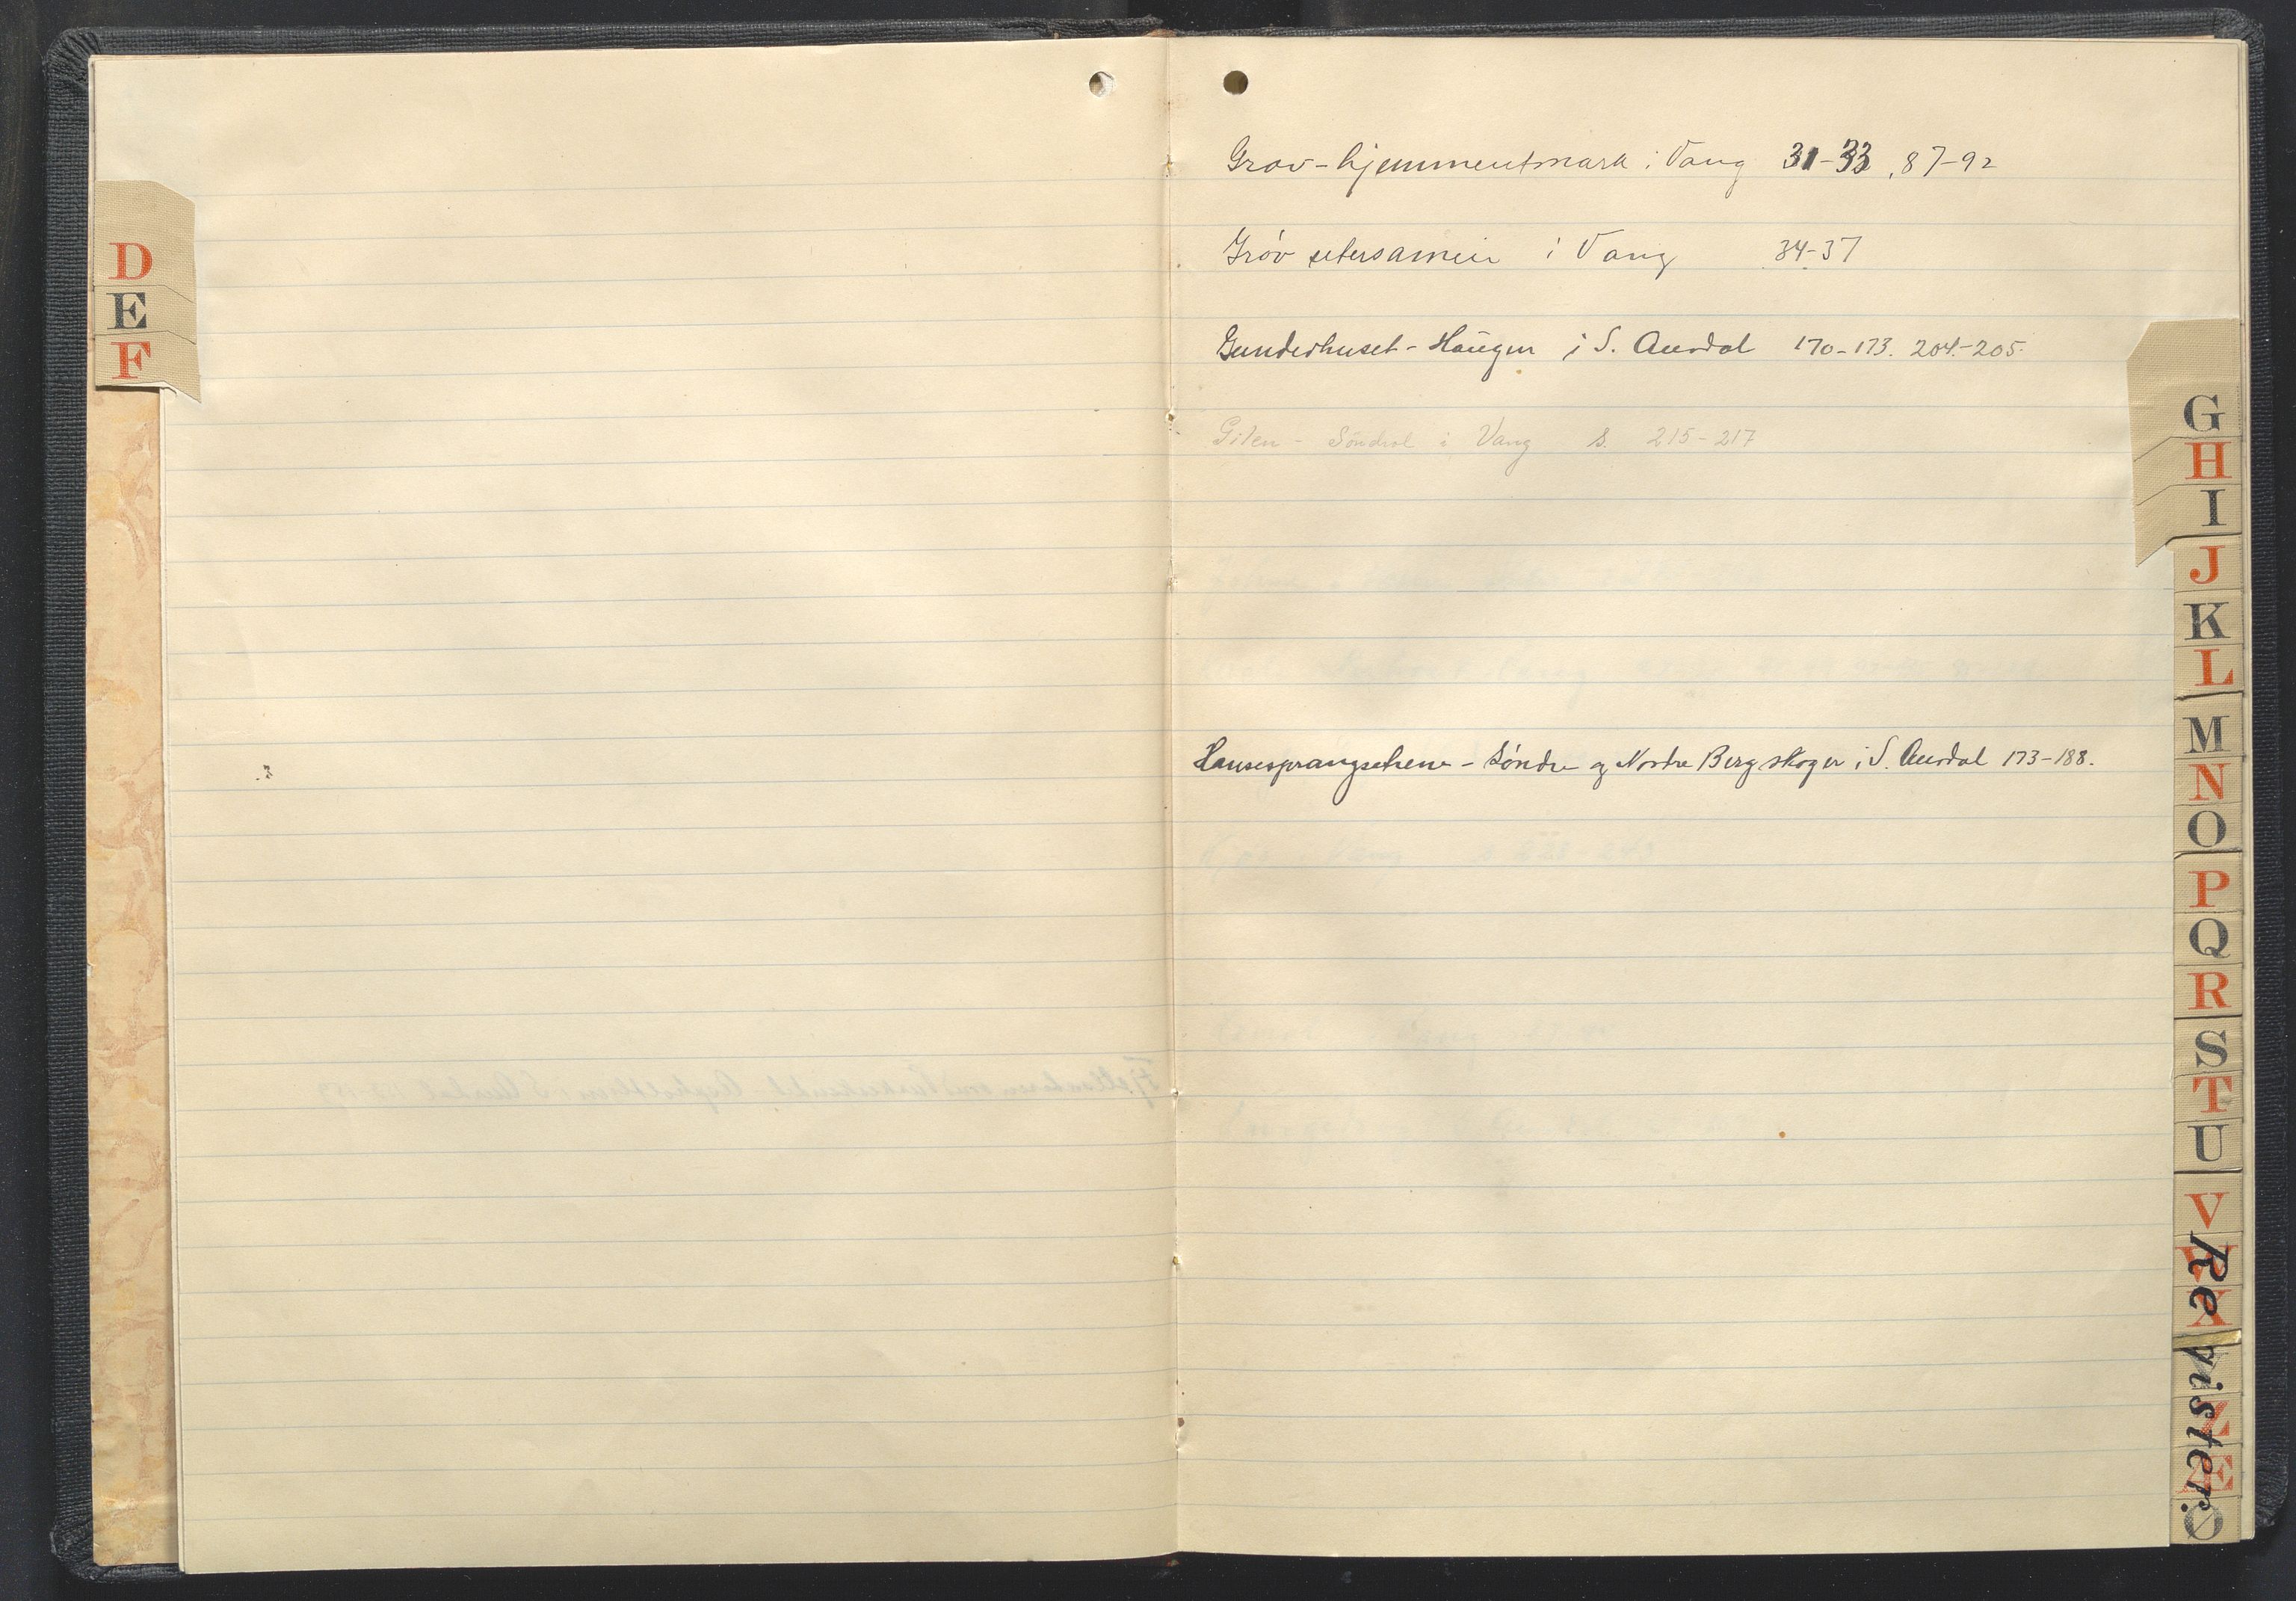 D
E
F
Grov - hjemmeutmark i Vang 31-33, 87-92
Gróv setersameie i Vang 34-37
Gunderhuset - Haugen i S. Aurdal 170-173. 204.-205.
Gilen - Söndrol i Vang s. 215-217
Hansesprangsetrene - Söndre og Nordre Bergskoger i S. Aurdal 173-188.
G
H
I
J
K
L
M
N
O
P
Q
R
S
T
U
V
W
X
Z
Æ
Ø
Register.